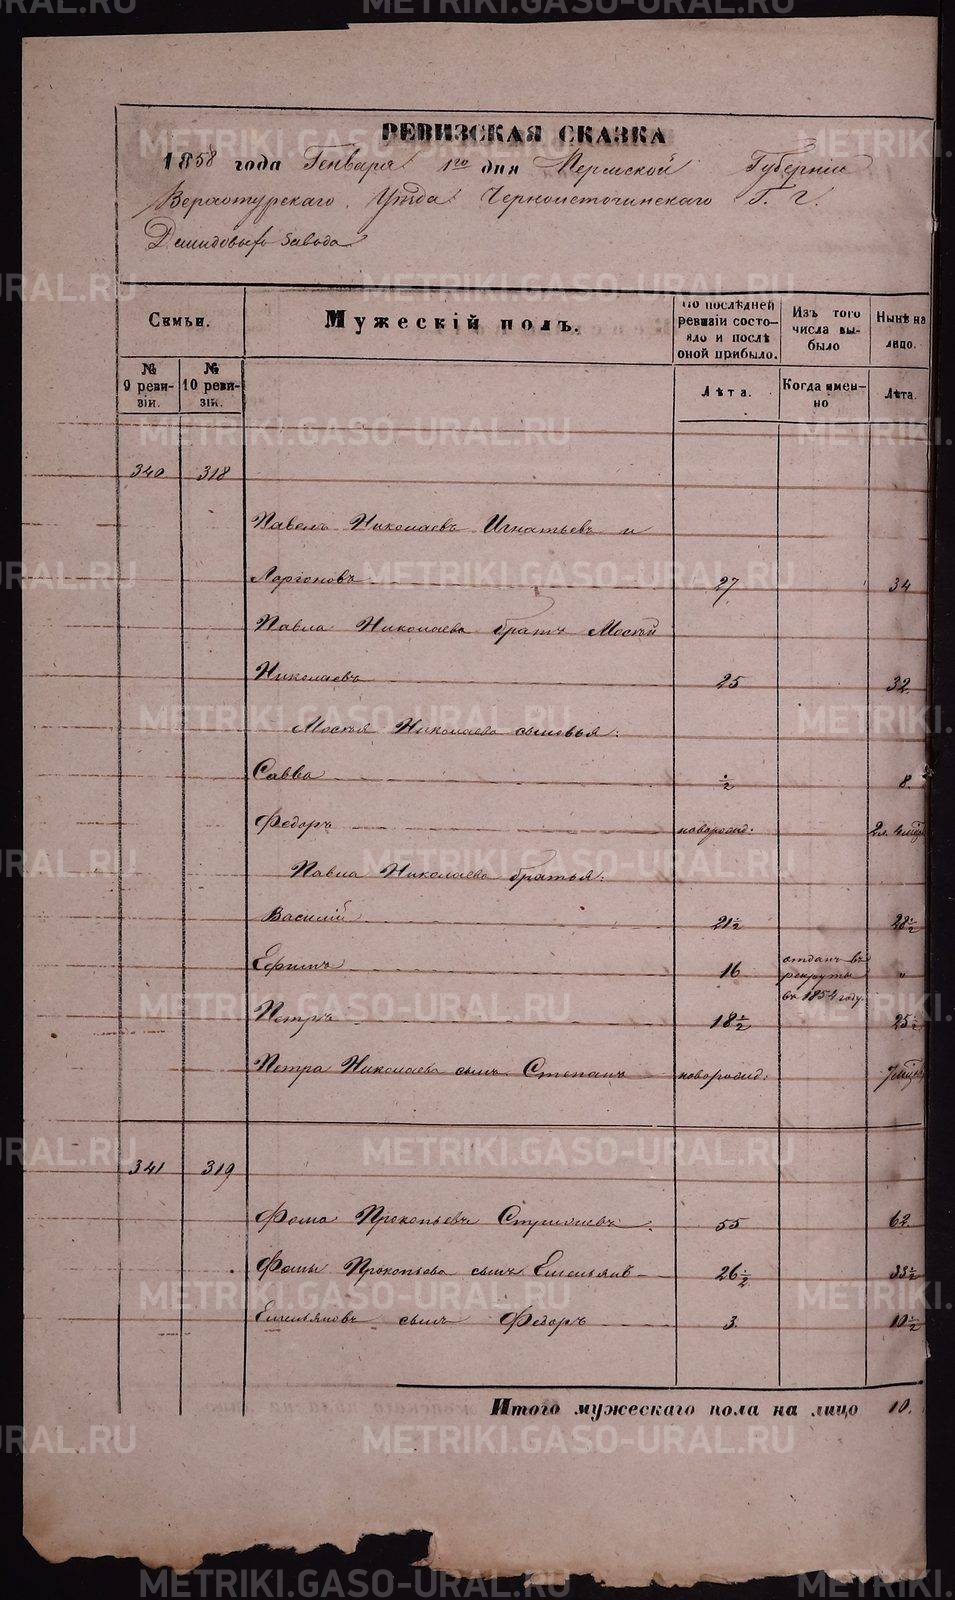 РЕВИЗСКАЯ СКАЗКА
1858 года Генваря 1го дня Пермской Губерніи
Верхотурскаго Уѣзда Черноисточинскаго Г. г.
Демидовыхъ Завода
Семьи.
№ 9 реви-зіи.
№ 10 реви-зіи.
Мужескій полъ.
По послѣдней ревизіи состо-яло и послѣ оной прибыло.
Лѣта.
Изъ того числа вы-было
Когда имен-но
Нынѣ на лицо.
Лѣта.
340 318
Павелъ Николаевъ Игнатьевъ и
Ларіоновъ 27 34
Павла Николаева братъ Мосѣй
Николаевъ 25 32.
Мосѣя Николаева сыновья:
Савва ½ 8.
Федоръ новорожд. 2 л.
Павла Николаева братья:
Василій 21½ 28½
Ефимъ 16 отданъ въ рекруты въ 1854 году. "
Петръ 18½ 25½
Петра Николаева сынъ Степанъ новорожд:
341 319
Фома Прокопьевъ 55 62
Фомы Прокопьева сынъ Емельянъ 26½ 33½
Емельяновъ сынъ Федоръ 3. 10½
Итого мужескаго пола на лицо 10.
METRIKI.GASO-URAL.RU